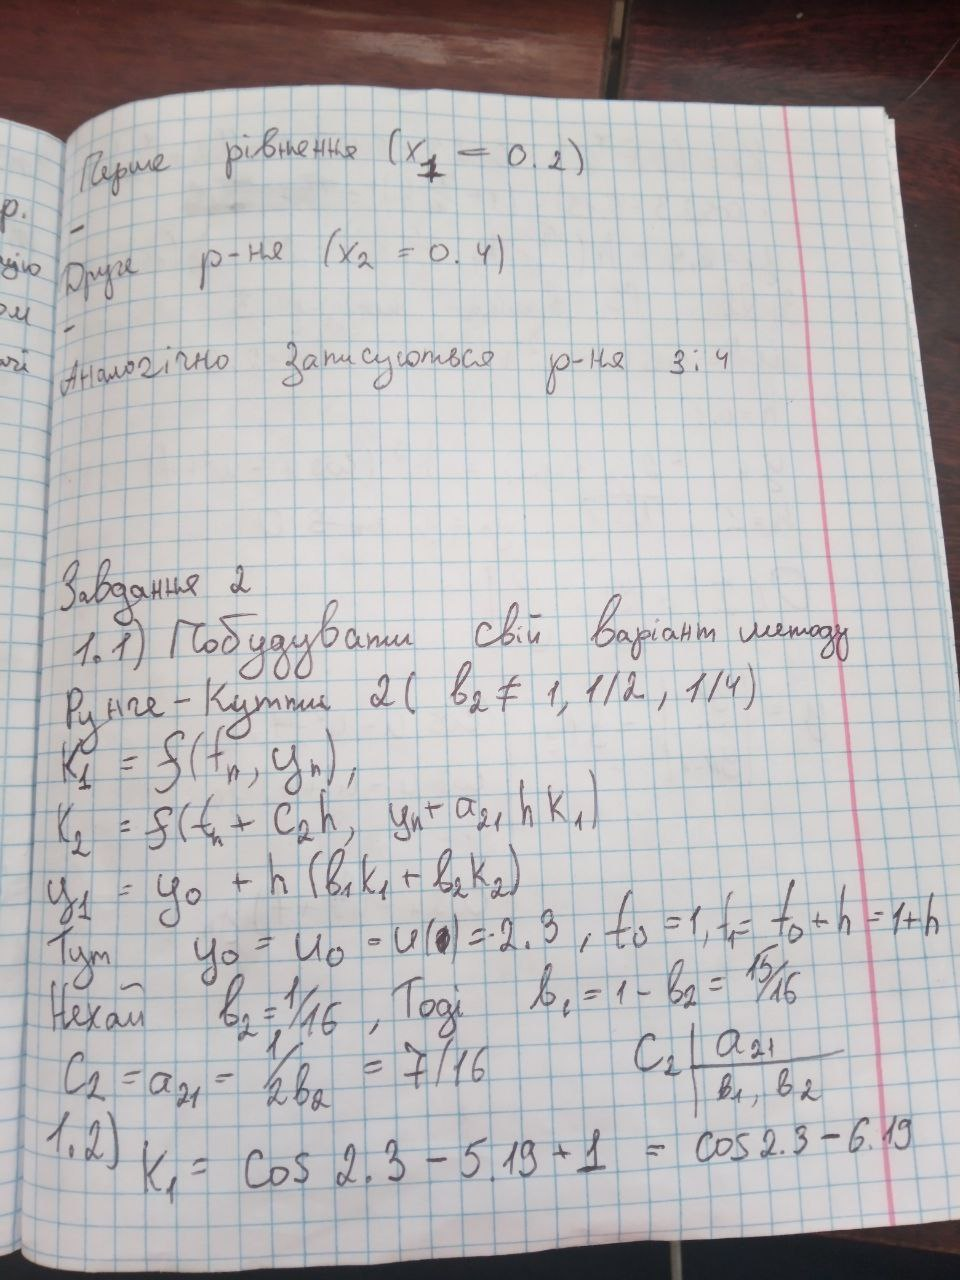 р.
ом
Перше рівнення (x₁ = 0.2)
-
Друге р-ня (x₂ = 0.4)
-
Аналогічно записуються р-ня 3 і 4
Завдання 2
1.1) Побудувати свій варіант методу
Рунге-Кутти 2 ( b₂ ≠ 1, 1/2, 1/4)
K₁ = f(tₙ, yₙ),
K₂ = f(tₙ + C₂h, yₙ + a₂₁ h K₁)
y₁ = y₀ + h (b₁k₁ + b₂k₂)
Тут y₀ = u₀ = u(1) = -2.3, t₀ = 1, t₁ = t₀ + h = 1 + h
Нехай b₂ = 1/16, Тоді b₁ = 1 - b₂ = 15/16
C₂ = a₂₁ = 1/2b₂ = 7/16
C₂ | a₂₁
b₁, b₂
1.2)
K₁ = cos 2.3 - 5.19 + 1 = cos 2.3 - 6.19